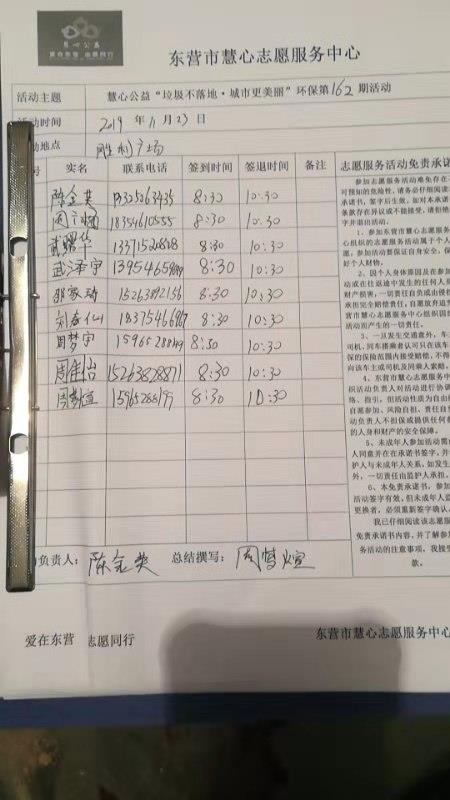 慧心公益
东营市慧心志愿服务中心
活动主题 慧心公益“垃圾不落地·城市更美丽”环保第162期活动
活动时间 2019年11月23日
动地点 胜利广场
号 实名 联系电话 签到时间 签退时间 备注
陈金英 8:30 10:30
18354610555 8:30 10:30
8:30 10:30
武泽宇 8:30 10:30
15263892156 8:30 10:30
8:30 10:30
周梦宇 8:30 10:30
周佳怡 15263828871 8:30 10:30
8:30 10:30
志愿服务活动免责承诺
参加志愿服务活动难免存在
可预知的危险性，请务必仔细阅读
承诺书，签字后生效。如对本承诺
条款存在异议或不能接受，请拒绝
字并退出活动。
1、参加东营市慧心志愿服务
心组织的志愿服务活动属于个人
愿，参加活动要保证自身安全，保
好个人财物。
2、因个人身体原因及在参加
动或在往返途中发生的任何人身
财产损害，一切责任自负或由侵权
承担完全赔偿责任，自愿放弃追究
营市慧心志愿服务中心组织因组
活动而产生的一切责任。
3、一旦发生交通意外，车主
司机、同车搭乘者认可只在该车
保的保险范围内接受赔偿，不得
向该车主或司机及同乘人索赔。
4、东营市慧心志愿服务中心
织活动负责人对活动进行协调
络、指引，但活动性质为自由组
自愿参加、风险自担、责任自负
动负责人不担保或提供任何参
的人身和财产的安全保障。
5、未成年人参加活动需由
人同意并在在承诺书签字，并
护人与未成年人关系，如发生
外，一切责任由监护人承担。
6、本免责承诺书，参加
活动签字有效，但未成年人监
更换者，必须重新签字确认。
我已仔细阅读该志愿服
免责承诺书内容，并了解参加
务活动的注意事项，我接受
款。
负责人：陈金英 总结撰写：周梦煊
爱在东营 志愿同行 东营市慧心志愿服务中心